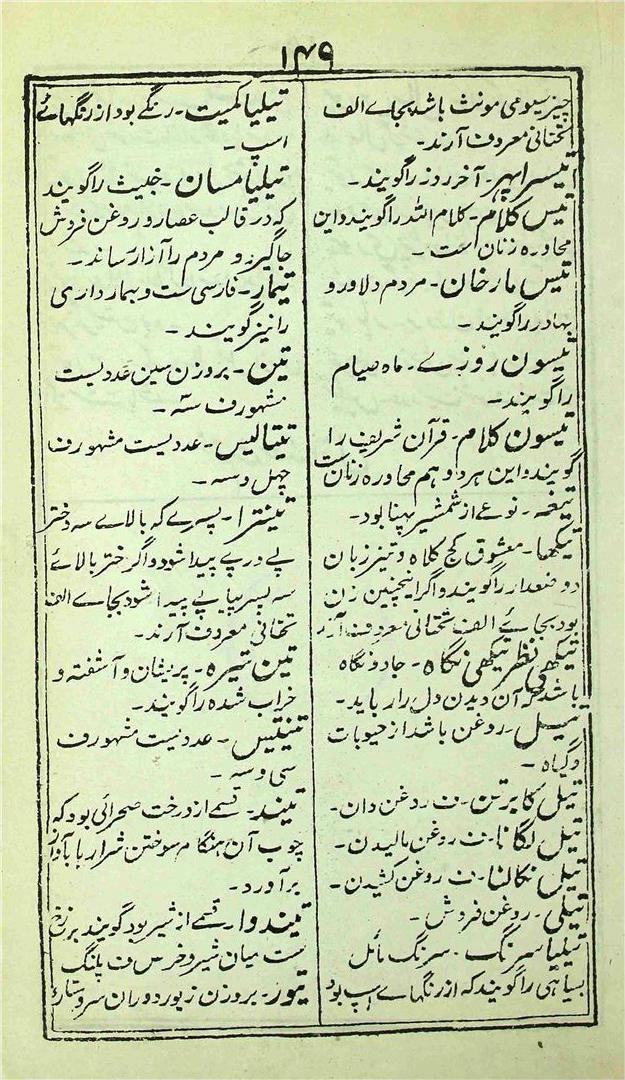 ۱۴۹
چیز سیومی مونث باشد بجاے الف
تحتانی معروف آرند۔
تیسرا پہر۔ آخر روز را گویند۔
تیس کلام۔ کلام اللہ را گویند و این
محاورہ زنان است۔
تیس مار خان۔ مردم دلاور و
بہادر را گویند۔
تیسون روزے۔ ماہ صیام
را گویند۔
تیسون کلام۔ قرآن شریف را
گویند و این ہر دو ہم محاورہ زنان ست
تیغہ۔ نوعے از شمشیر پہنا بود۔
تیکھا۔ معشوق کج کلاہ و تیز زبان
و ضعدار را گویند و اگر اینچنین زن
بود بجاے الف تحتانی معروف آرند
تیکھی نظر تیکھی نگاہ۔ جادو نگاہ
باشد کہ آن دیدن دل را رباید۔
تیل۔ روغن باشد از حبوبات
و گیاہ۔
تیل کا برتن۔ ف روغن دان۔
تیل لگانا۔ ف روغن مالیدن۔
تیل نکالنا۔ ف روغن کشیدن۔
تیلی۔ روغن فروش۔
تیلیا سرنگ۔ سرنگ مائل
بسیاہی را گویند کہ از رنگہاے اسپ بود
تیلیا کمیت۔ رنگے بود از رنگہاے
اسپ۔
تیلیا مسان۔ خبیث را گویند
کہ در قالب عصار و روغن فروش
جا گیرد و مردم را آزار رساند۔
تیمار۔ فارسی ست و بیمار داری
را نیز گویند۔
تین۔ بروزن سین عددیست
مشہور ف سہ۔
تیتالیس۔ عددیست مشہور ف
چہل و سہ۔
تینترا۔ پسرے کہ بالاے سہ دختر
پے درپے پیدا شود و اگر دختر بالاے
سہ پسر پیاپے پیدا شود بجاے الف
تحتانی معروف آرند۔
تین تیرہ۔ پریشان و آشفتہ و
خراب شدہ را گویند۔
تینتیس۔ عددیست مشہور ف
سی و سہ۔
تیند۔ قسمے از درخت صحرائی بود کہ
چوب آن ہنگام سوختن شرارہا باآواز
برآورد۔
تیندوا۔ قسمے از شیر بود گویند برزخ
ست میان شیر و خرس ف پلنگ
تیور۔ بروزن زیور دوران سر و ستارہ